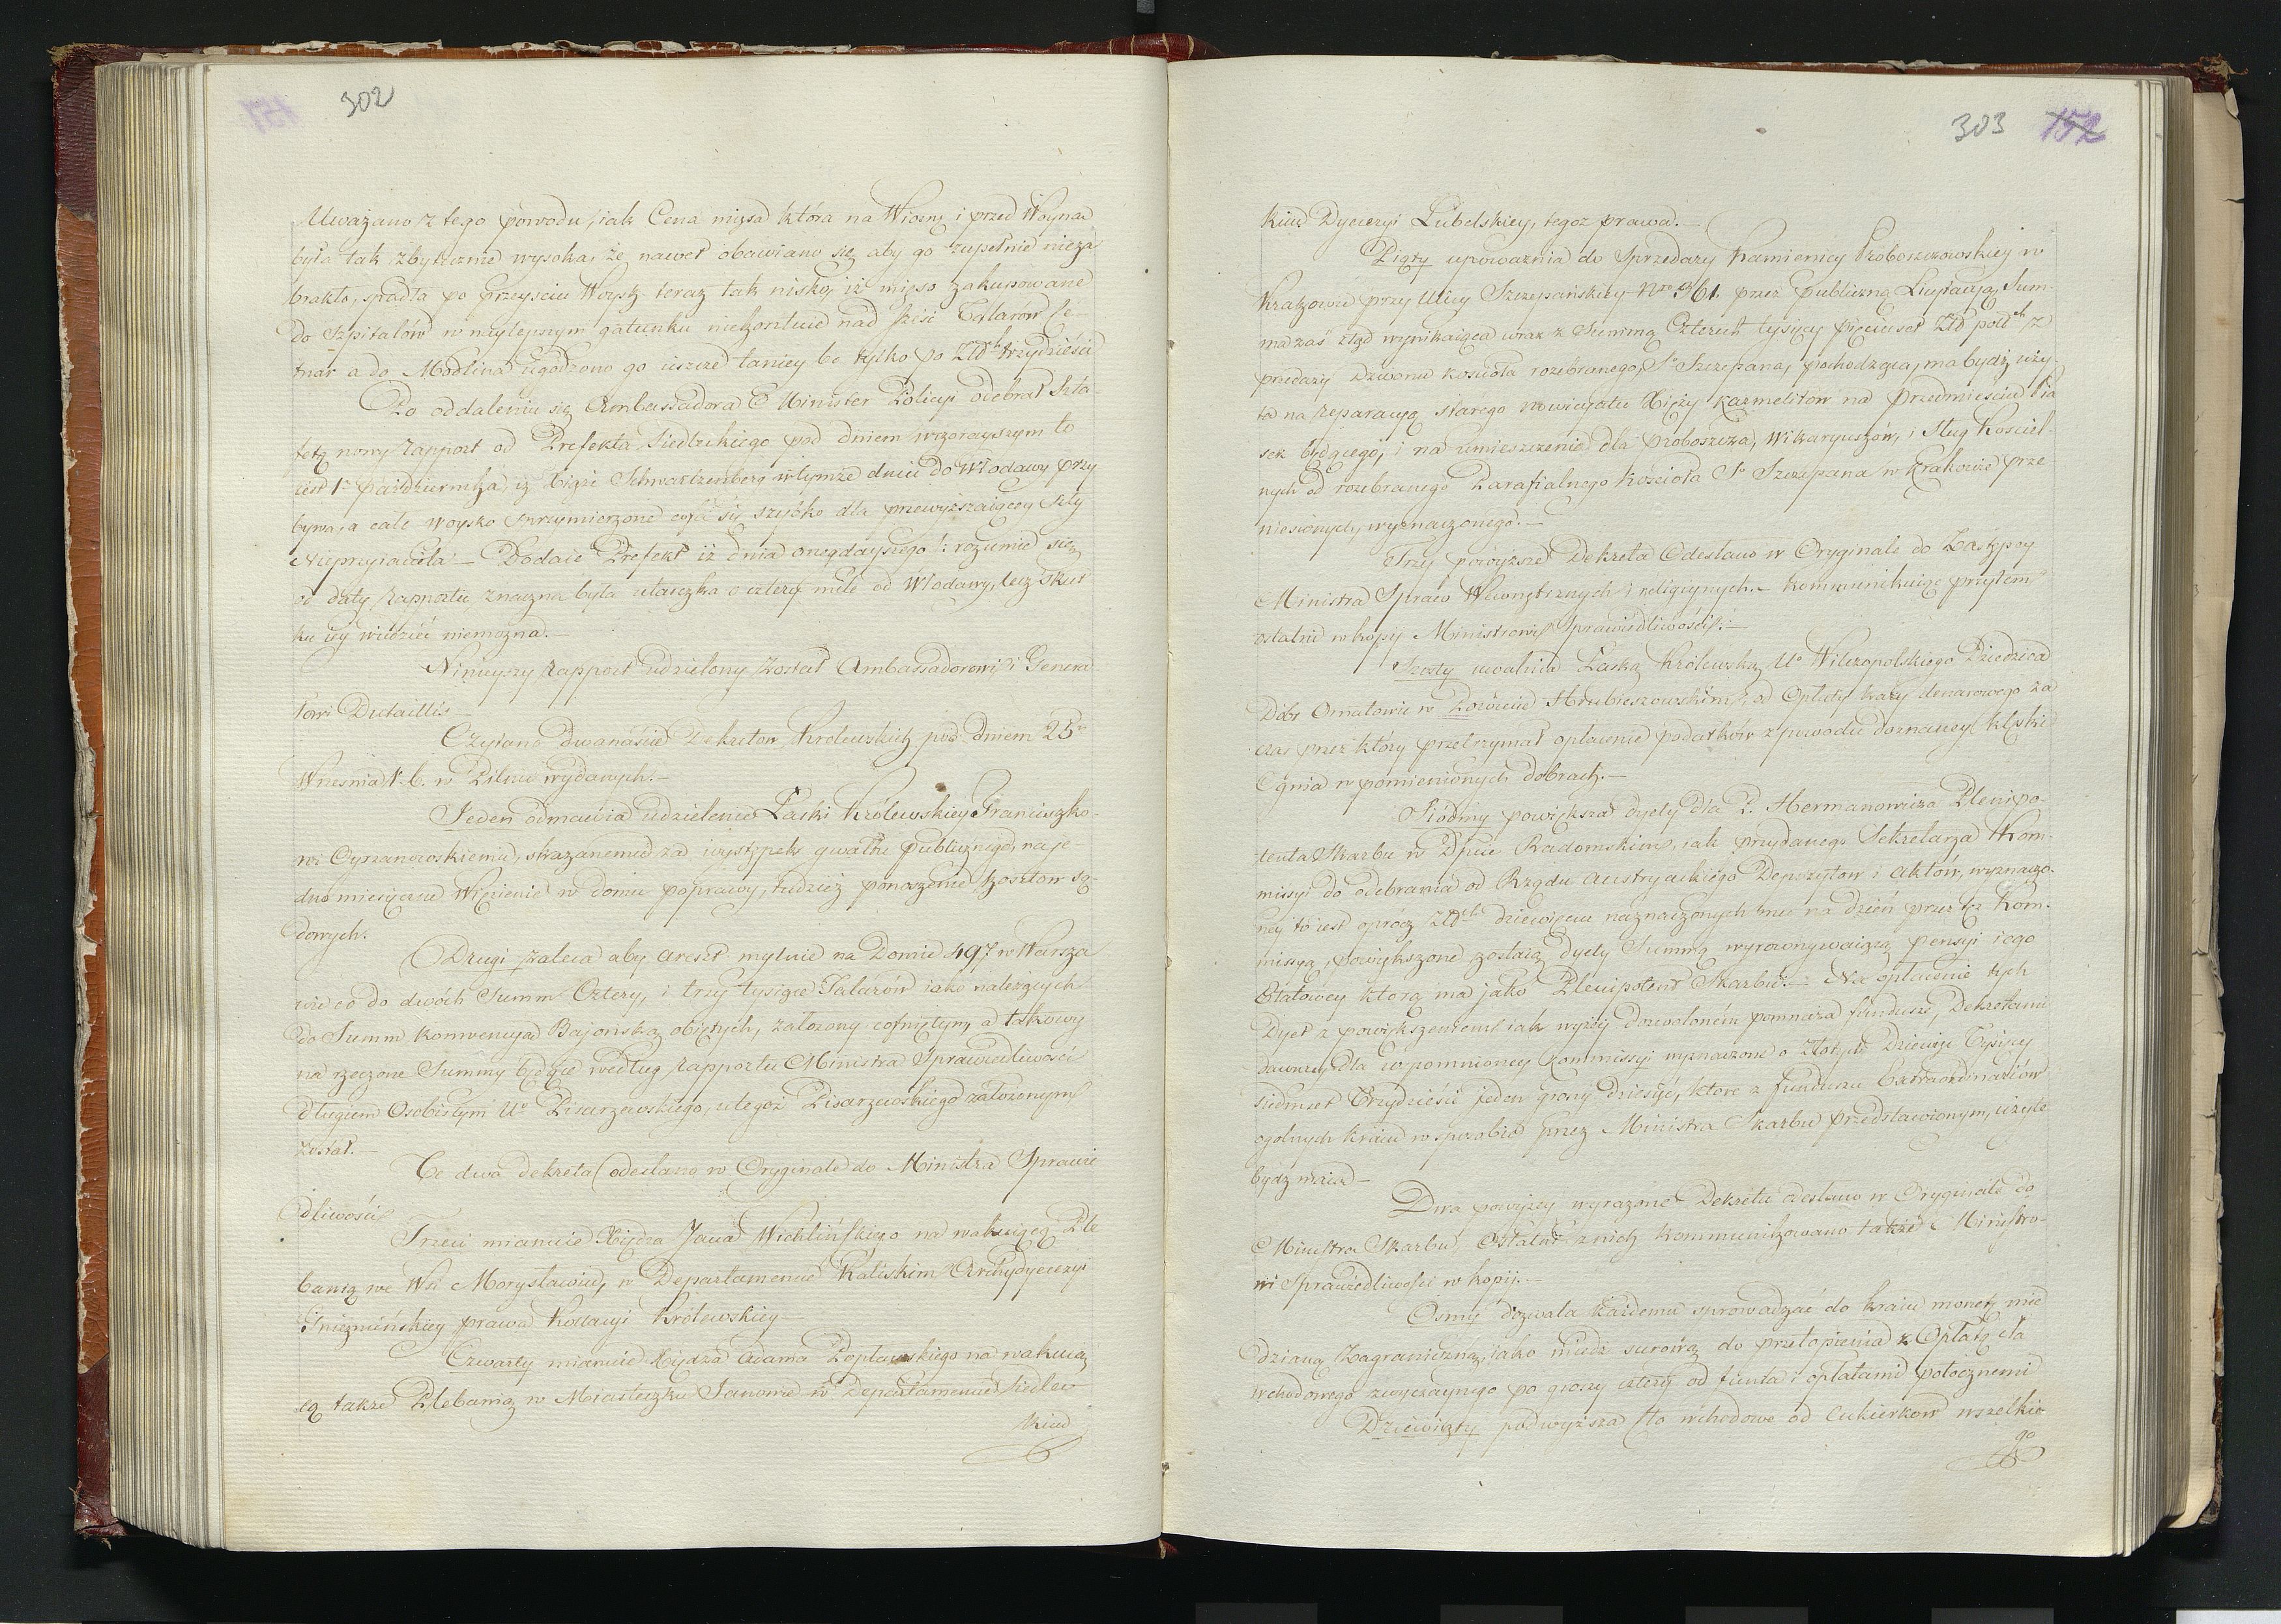 302
Uważano z tego powodu, iak Cena mięsa która na Wiosnę i przed Woyną
była tak zbytecznie wysoka, że nawet obawiano się aby go zupełnie nieza
brakło, spadła po przeysciu Woysk teraz tak nisko, iż mięso zakupowane
do Szpitalów w naylepszym gatunku niekosztuie nad sześć Talarów Ce-
tnar a do Modlina ugodzono go ieszcze taniey bo tylko po Złłh trzydzieści
Po oddaleniu się Ambassadora Minister Policyi odebrał Szta-
fetę nowy Rapport od Prefekta Siedleckiego pod dniem wczorayszym to
iest 1o Października, iż Xiąże Schwartzenberg w tymże dniu do Włodawy przy
bywa, a całe woysko sprzymierzone cofa się szybko dla przewyższaiącey siły
Nieprzyiaciela – Dodaie Prefekt iż dnia onegdayszego /: rozumie się
od daty Rapportu znaczna była utarczka o cztery mile od Włodawy, lecz skut
ku iey wiedzieć niemożna. –
Ninieyszy Rapport udzielony został Ambassadorowi i Genera
łowi Dutaillis –
Czytano dwanaście Dekretow Królewskich pod dniem 25o
Wrzesnia r. b. w Pilnic wydanych. –
Jeden odmawia udzielenie Łaski Królewskiey Franciszko-
wi Cyrzanowskiemu, skazanemu za występek gwałtu publicznego, na je-
dno miesięczne Więzienie w domu poprawy, tudzież ponoszenie kosztow są-
dowych.
Drugi zaleca aby areszt mylnie na Domie 497 w Warsza
wie co do dwóch Summ Cztery, i trzy tysiące Talarów iako należących
do Summ Konwencyą Bajońską obiętych, założony cofniętym, a takowy
na rzeczone Summy będące według Rapportu Ministra Sprawiedliwości
długiem Osobistym Uo Pisarzewskiego, u tegoż Pisarzewskiego założonym
został. –
Te dwa dekreta odesłano w Oryginale do Ministra Sprawie
dliwości
Trzeci mianuie Xiędza Jana Wichlińskiego na wakuiącą Ple
banią we Wsi Morysławiu, w Departamencie Kaliskim Archydyecezyi
Gnieznieńskiey prawa Kollacyi Królewskiey –
Czwarty mianuie Xiędza Adama Popławskiego na wakuią
cą także Plebanią w Miasteczku Janowie w Departamencie Siedlec-
kim
303 152
kim Dyecezyi Lubelskiey, tegoż prawa. –
Piąty upoważnia do Sprzedaży Kamienicy Proboszczowskiey w
Krakowie przy Ulicy Szczepańskiey Nro 361. przez publiczną Licytacyą, Sum-
ma zaś ztąd wynikaiąca wraz z Summą Czterech tysięcy pięciuset Złł polch z
przedaży Dzwonu koscioła rozebranego, So Szczepana, pochodzącą, ma bydź uży-
ta na reparacyą starego nowicyatu Xięży Karmelitów na Przedmieściu Pia
sek będącego, i na umieszczenie dla proboszcza, Wikaryuszów, i Sług Kościel-
nych od rozebranego Parafialnego Kościoła So Szczepana w Krakowie prze-
niesionych, wyznaczonego. –
Trzy powyższe Dekreta Odesłano w Oryginale do Zastępcy
Ministra Spraw Wewnętrznych i religiynych. – kommunikuiąc przytem
ostatni w kopii Ministrowi Sprawiedliwości. –
Szosty uwalnia Łaską Królewską Uo Wilczopolskiego Dziedzica
Dóbr w Powiecie Hrubieszowskim, od Opłaty kary denarowego za
czas przez który przetrzymał opłacenie podatków z powodu doznaney klęski
Ognia w pomienionych dobrach. –
Siódmy powiększa dyety dla P. Hermanowicza Plenipo-
tenta Skarbu w Dpcie Radomskim, iak przydanego Sekretarza Kom-
missyi do odebrania od Rządu Austryackiego Depozytow i Aktów, wyznaczo-
ney to iest oprócz Złłch dziewięciu naznaczonych mu na dzień przez tę Kom-
missyą, powiększone zostaią dyety Summą wyrownywaiącą pensyi iego
Etatowey którą ma jako Plenipotent Skarbu. – Na opłacenie tych
Dyet z powiększeniem iak wyżey dozwolonem pomnaża fundusze, Dekretami
dawniey dla wspomnioney Kommissyi wyznaczone o Złotych Dziewięć Tysięcy
siedmset Trzydzieści jeden groszy dziesięć, które z funduszu Extraordinariów
ogolnych kraiu w sposobie przez Ministra Skarbu przedstawionym, użyte
bydź maią –
Dwa powyżey wyrażone Dekreta odesłano w Oryginale do
Ministra Skarbu, Ostatni z nich kommunikowano także Ministro-
wi Sprawiedliwości w kopii. –
Osmy dozwala każdemu sprowadzać do kraiu monetę mie
dzianą Zagraniczną, iako miedź surową do przetopienia z Opłatą cła
wchodowego zwyczaynego po groszy cztery od funta i opłatami potocznemi
Dziewiąty podwyższa cło wchodowe od Cukierkow wszelkie
go